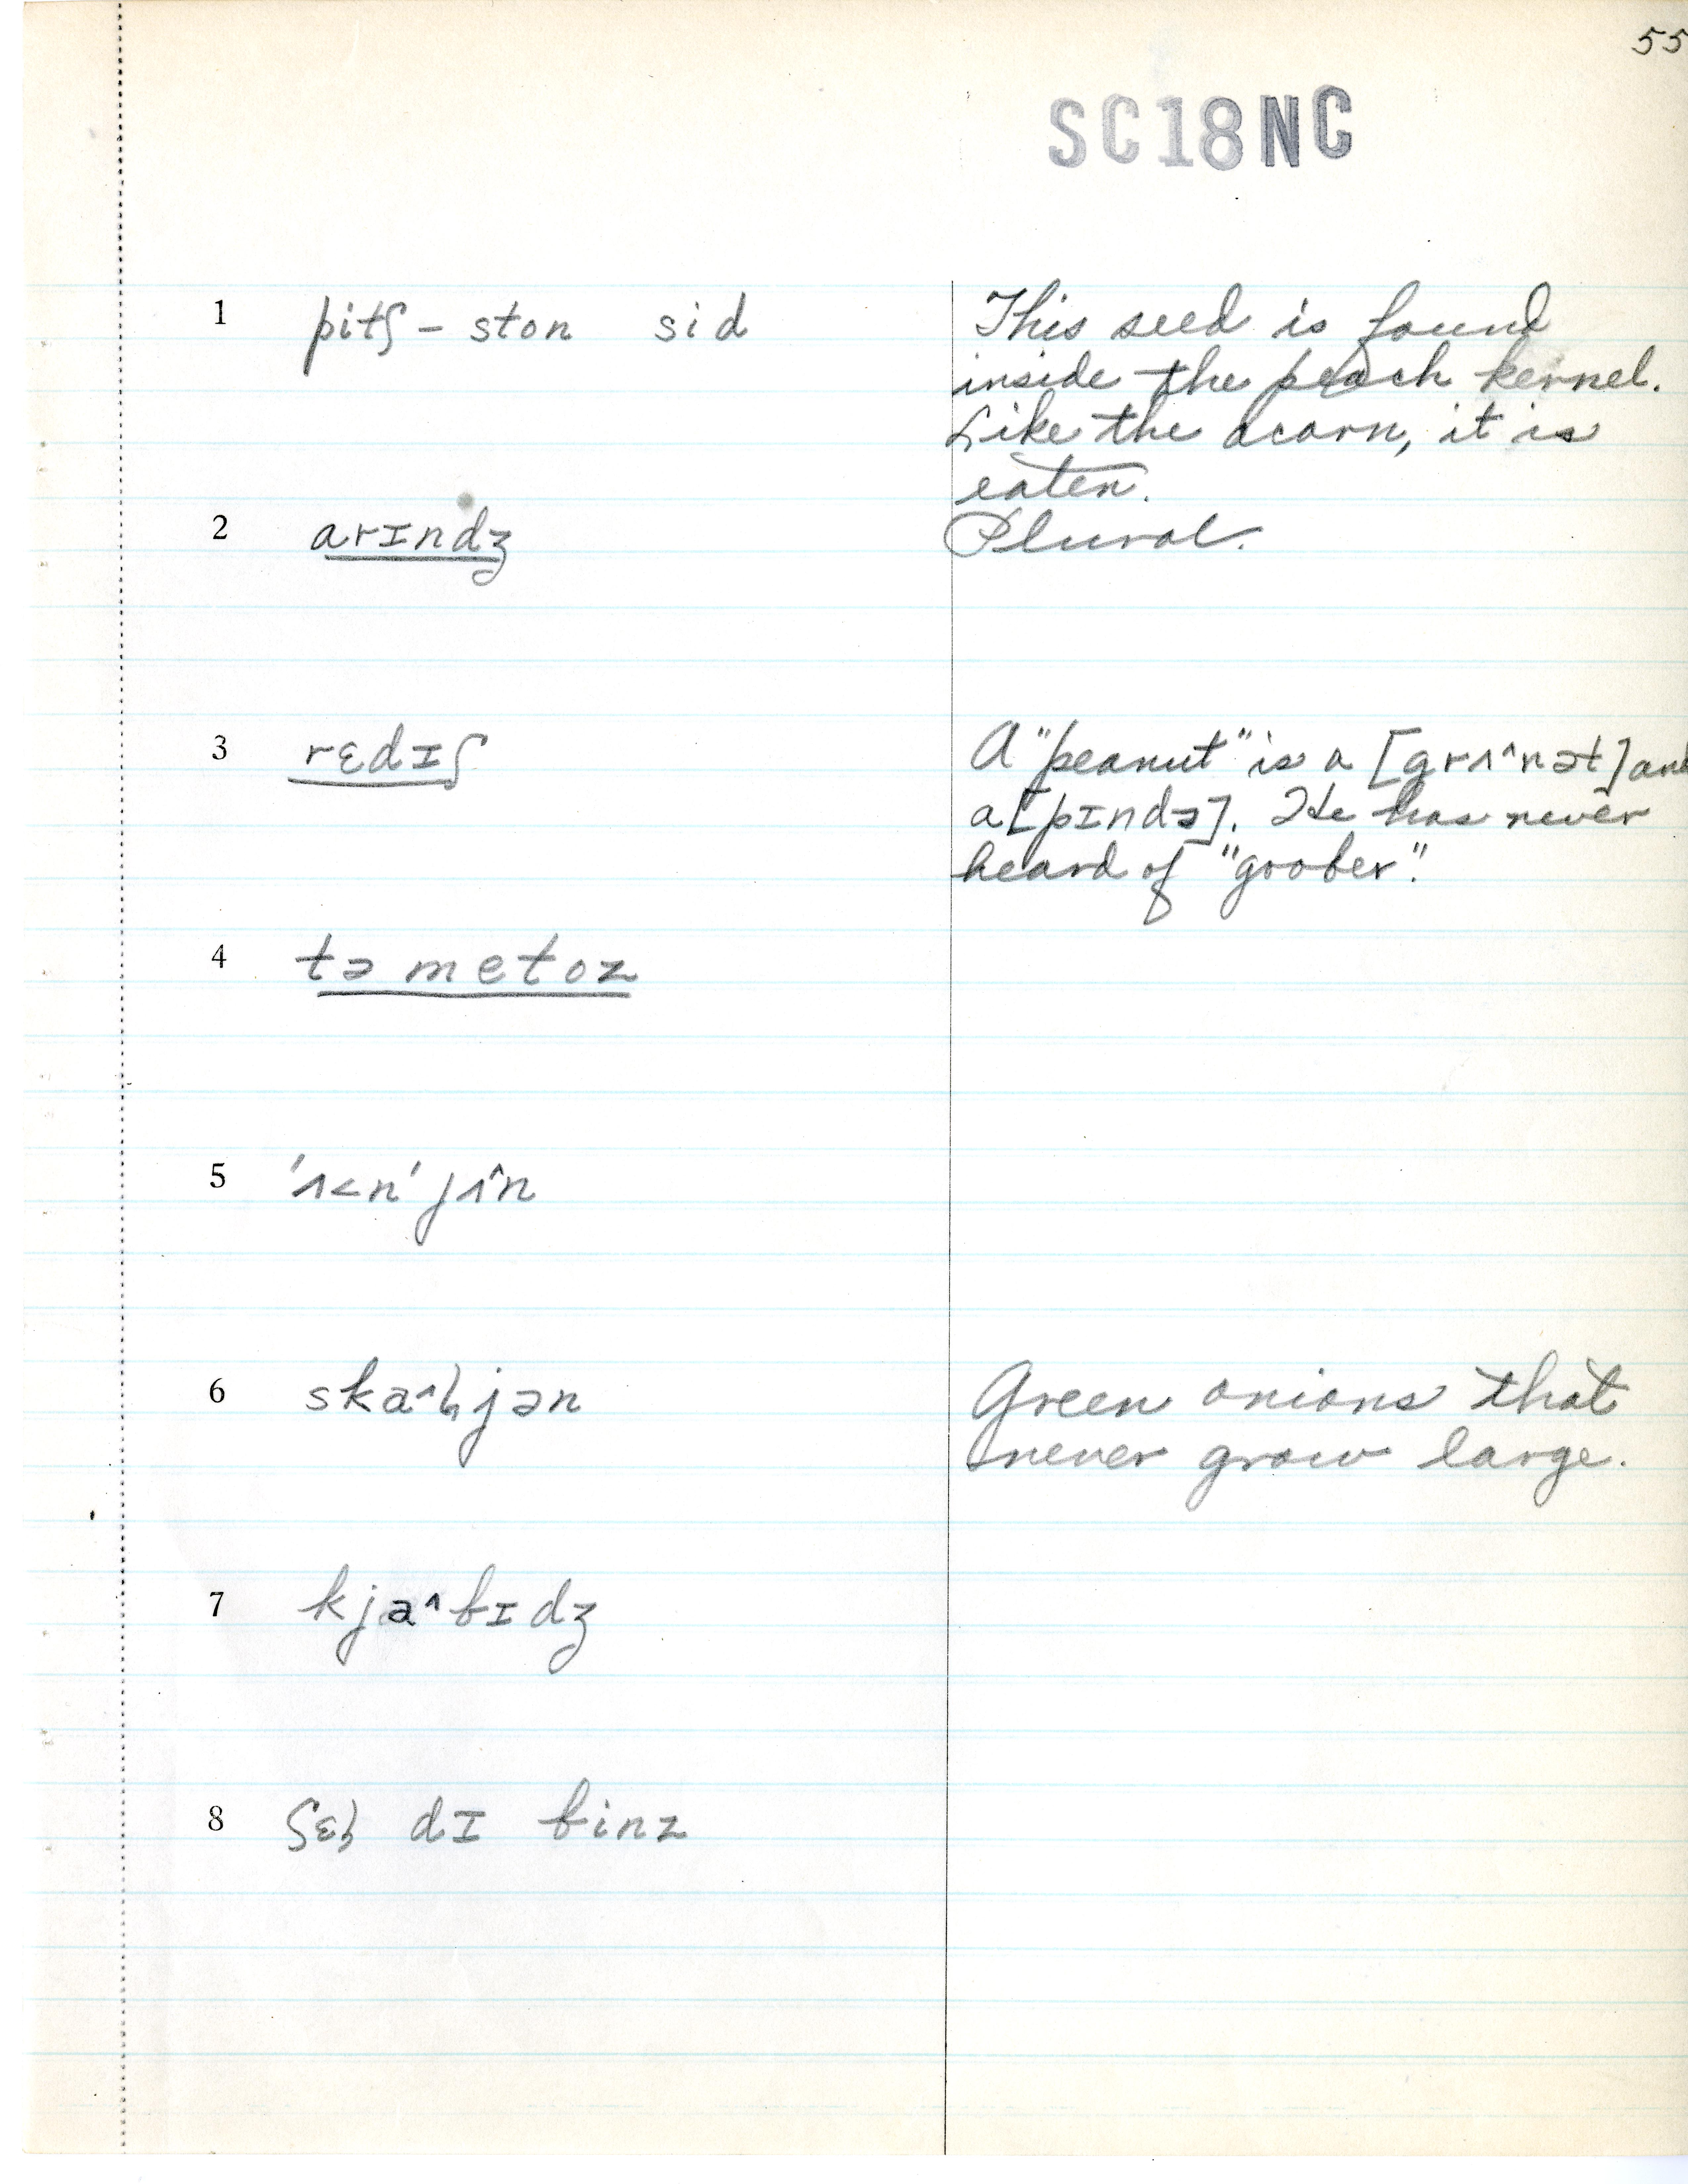 55
SC18NC
1 pitʃ - ston sid
This seed is found
inside the peach kernel.
Like the acorn, it is
eaten.
2 arɪndʒ
Plural.
3 rɛdɪʃ
A "peanut" is a [grʌ^nət] and
a [pɪndə]. He has never
heard of "goober".
4 tə metoz
5 'ʌ<n'jʌ^n
6 ska^ljən
Green onions that
never grow large.
7 kja^bɪdʒ
8 dɪ binz